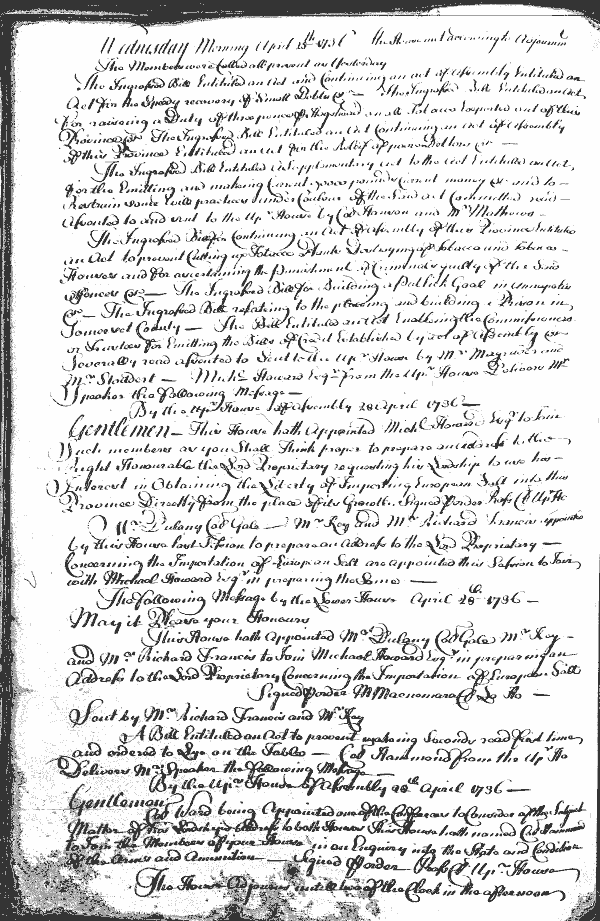 Wednesday Morning April 28th 1736 the House met according to Adjournm
The Members were Called all present as Yesterday
The Ingrossed Bill Entituled an Act Continuing an act of Assembly Entituled an
Act for the Speedy recovery of Small Debts &c — The Ingrossed Bill Entituled an Act
For raising a Duty of three pence Hogshead on all Tobacco Exported out of this
Province &c The Ingrossed Bill Entituled an Act Continuing an Act of Assembly
of this Province Entituled an Act for the Relief of poor Debtors &c —
The Ingrossed Bill Entituled a Supplementary act to the Act Entituled an Act
for the Emitting and making Current pounds Current money &c and to
Restrain some Evil practices under Colour of the said act Committed read
Assented to and sent to the Upr House by Col Hanson and Mr Mathews —
The Ingrossed Bill for Continuing an Act of Assembly of this Province Entituled
an Act to prevent Cutting up Tobacco Plants Destroying of Tobacco and Tobacco
Houses and for ascertaining the punishment of Criminals guilty of the said
offences &c — The Ingrossed Bill for Building a Publick Goal in Annapolis
&c — The Ingrossed Bill relating to the placing and building a Prison in
Somerset County — The Bill Entituled an Act Enabling the Commissioners
or Trustees for Emitting the Bills of Credit Established by act of Assembly &c
Severally read assented to Sent to the Upr House by Mr Magruder and
Mr Stoddert — Michl Howard Esqr from the Upr House Delivers Mr
Speaker the Following Message —
By the Upr House of Assembly 28 April 1736 —
Gentlemen — This House hath Appointed Michl Howard Esqr to Joine
Such members as you Shall Think proper to prepare an address to the
right Honourable the Lord Proprietary requesting his Lordship to use his
Interest in Obtaining the Liberty of Importing European Salt into this
Province Directly from the place of its Growth. Signed order Ross Cl Upr Ho
Mr Dulany Col Gale — Mr Key and Mr Richard Francis appointed
by this House last Session to prepare an Address to the Lord Proprietary —
Concerning the Importation of European Salt are appointed this Session to Join
with Michael Howard Esqr in preparing the Same —
The following Message by the Lower House April 28th 1736 —
May it Please your Honours
This House hath Appointed Mr Dulany Col Gale Mr Key
and Mr Richard Francis to Join Michael Howard Esqr in preparing an
Address to the Lord Proprietary Concerning the Importation of European Salt
Signed order M Macnemara Cl Lo Ho —
Sent by Mr Richard Francis and Mr Key
A Bill Entituled an Act to prevent making Seconds read first time
and ordered to Lye on the Table — Col Hammond from the Upr Ho
Delivers Mr Speaker the Following Message
By the Upr House of Assembly 28th April 1736 —
Gentlemen
Col Ward being Appointed one of the Conferees to Consider of the Subject
Matter of his Lordships Address to both Houses This House hath named Col Hammond
to Join the Members of your House in an Enquiry into the State and Condition
of the Arms and Ammunition — Signed order Ross Cl Upr House
The House Adjourns untill two of the Clock in the afternoon